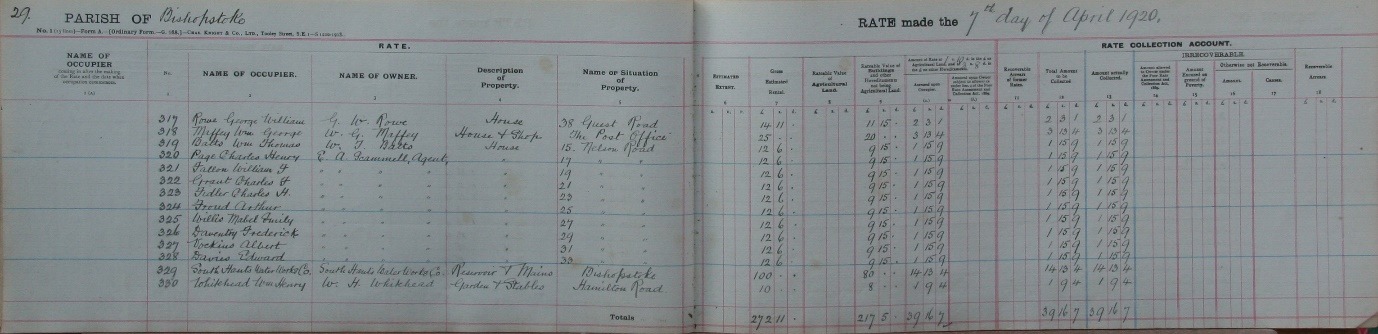 29.
PARISH OF Bishopstoke
RATE made the 7th day of April 1920.
RATE.
RATE COLLECTION ACCOUNT.
NAME OF OCCUPIER
No. NAME OF OCCUPIER. NAME OF OWNER. Description of Property. Name or Situation of Property. Gross Estimated Rental. Rateable Value of Agricultural Land. Total Amount to be Collected. Amount actually Collected. IRRECOVERABLE.
317 Rowe George William G. W. Rowe House 38 Guest Road 14 11 . 11 15 . 2 3 1 2 3 1 2 3 1
318 Maffey Wm George W. G. Maffey House & Shop The Post Office 25 . . 20 . . 3 13 4 3 13 4 3 13 4
319 Batts Wm Thomas W. T. Batts House 15. Nelson Road 12 6 . 9 15 . 1 15 9 1 15 9 1 15 9
320 Page Charles Henry E. A. Scammell, Agent, " 17 " " 12 6 . 9 15 . 1 15 9 1 15 9 1 15 9
321 William F " " " " " 19 " " 12 6 . 9 15 . 1 15 9 1 15 9 1 15 9
322 Grant Charles F " " " " " 21 " " 12 6 . 9 15 . 1 15 9 1 15 9 1 15 9
323 Fidler Charles H. " " " " " 23 " " 12 6 . 9 15 . 1 15 9 1 15 9 1 15 9
324 Froud Arthur " " " " " 25 " " 12 6 . 9 15 . 1 15 9 1 15 9 1 15 9
325 Willis Mabel Emily " " " " " 27 " " 12 6 . 9 15 . 1 15 9 1 15 9 1 15 9
326 Daventry Frederick " " " " " 29 " " 12 6 . 9 15 . 1 15 9 1 15 9 1 15 9
327 Vockins Albert " " " " " 31 " " 12 6 . 9 15 . 1 15 9 1 15 9 1 15 9
328 Davies Edward " " " " " 33 " " 12 6 . 9 15 . 1 15 9 1 15 9 1 15 9
329 South Hants Water Works Co. South Hants Water Works Co. Reservoir & Mains Bishopstoke 100 . . 80 . . 14 13 4 14 13 4 14 13 4
330 Whitehead Wm Henry W. H. Whitehead Garden & Stables Hamilton Road 10 . . 8 . . 1 9 4 1 9 4 1 9 4
Totals 272 11 . 217 5 . 39 16 7 39 16 7 39 16 7